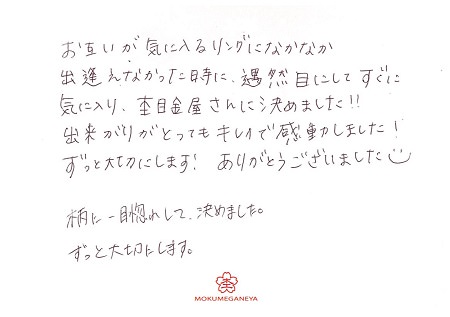 お互いが気に入るリングになかなか
出逢えなかった時に、偶然目にしてすぐに
気に入り、杢目金屋さんに決めました!!
出来上がりがとってもキレイで感動しました!
ずっと大切にします! ありがとうございました
柄に一目惚れして、決めました。
ずっと大切にします。
杢
MOKUMEGANEYA